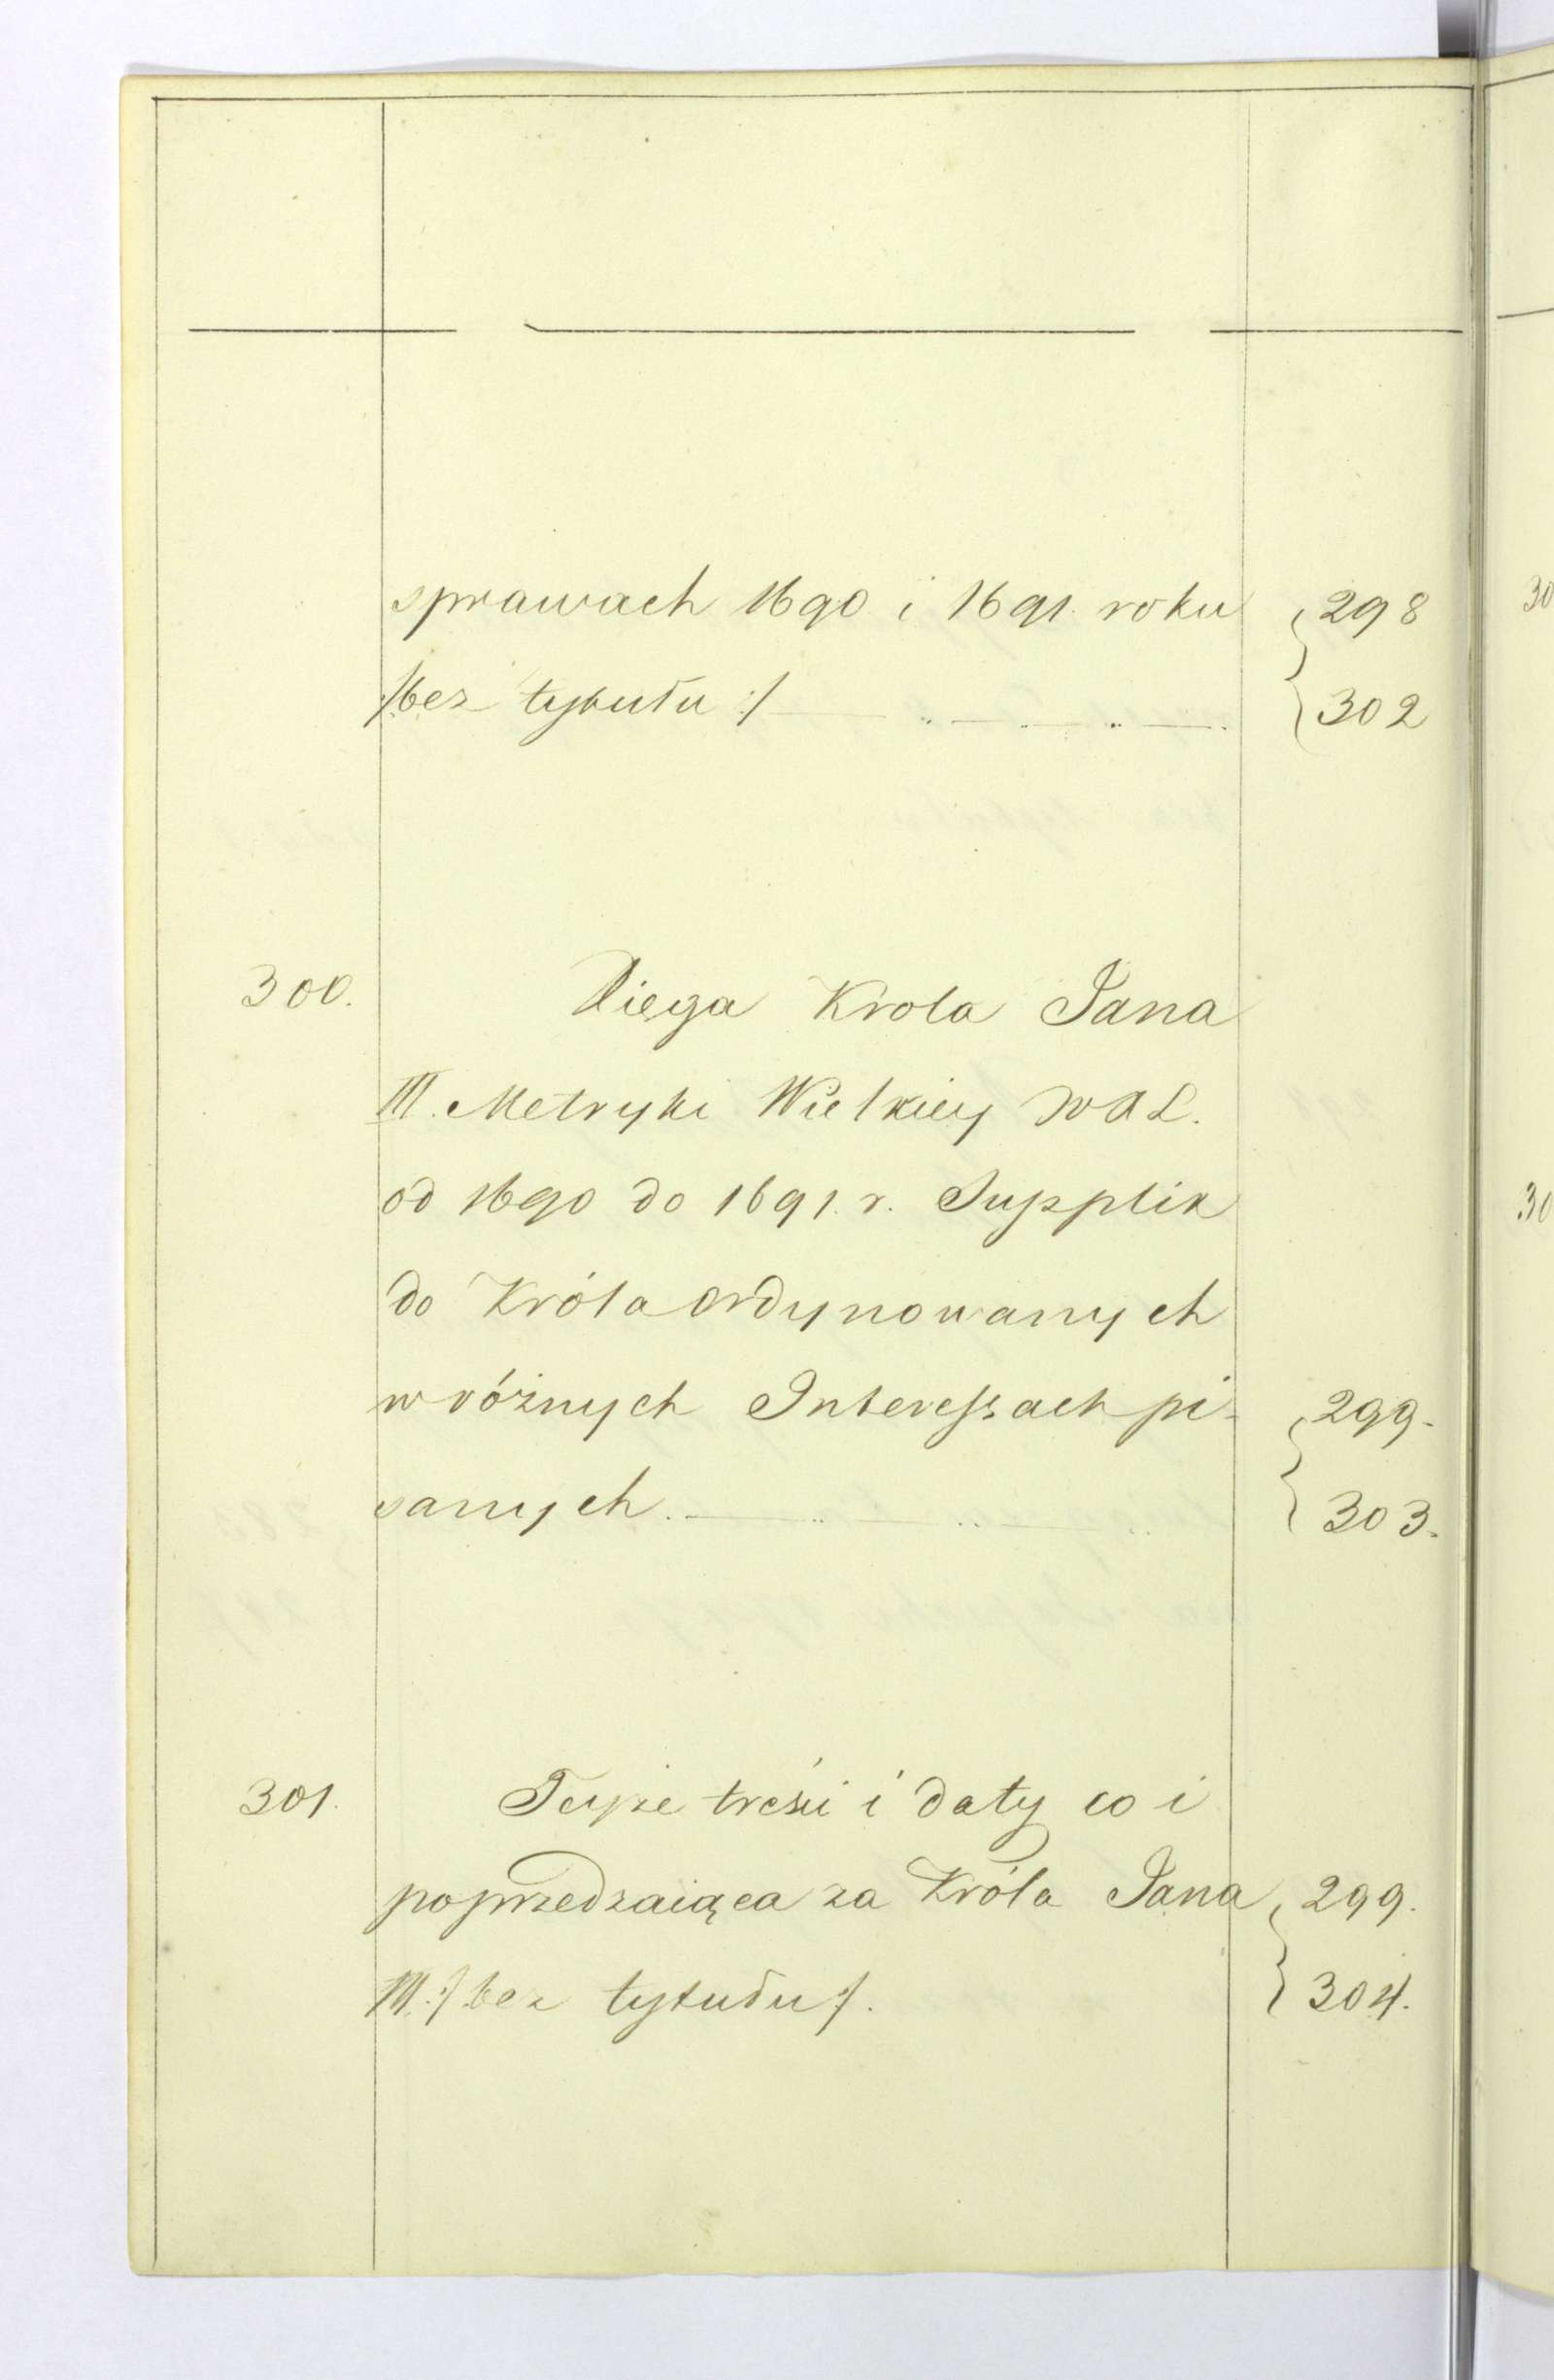 sprawach 1690 i 1691. roku 298
/:bez tytułu:/ 302
300. Xięga Krola Jana
III. Metryki Wielkiey W X L.
od 1690 do 1691. r. Supplik
do Króla ordynowanych
w róźnych Interessach pi- 299.
sanych. 303.
301. Teyże treści i daty co i
poprzedzaiąca za Króla Jana 299.
III. /:bez tytułu:/. 304.
30
30